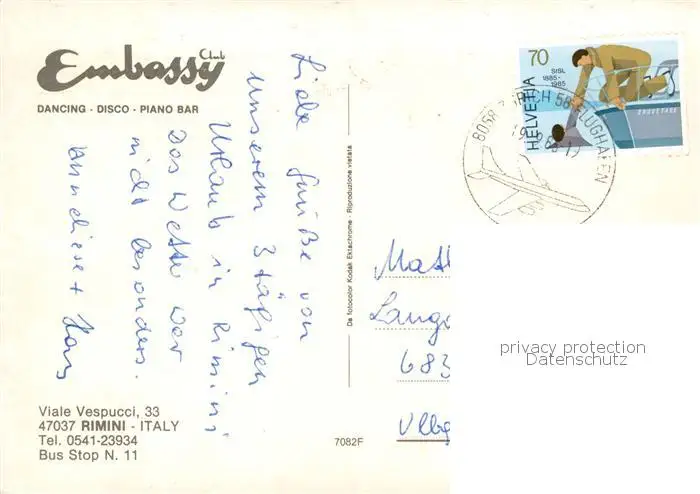 Embassy Club
DANCING - DISCO - PIANO BAR
Liebe Grüße von
unserem 3 tägigen
Urlaub in Rimini
Das Wetter war
nicht besonders.
Anneliese + Hans
Viale Vespucci, 33
47037 RIMINI - ITALY
Tel. 0541-23934
Bus Stop N. 11
7082F
Da fotocolor Kodak Ektachrome - Riproduzione vietata
70
SISL
1885-
1985
HELVETIA
8058 ZÜRICH 58 FLUGHAFEN
Math
Lange
683
Vlbg
privacy protection
Datenschutz